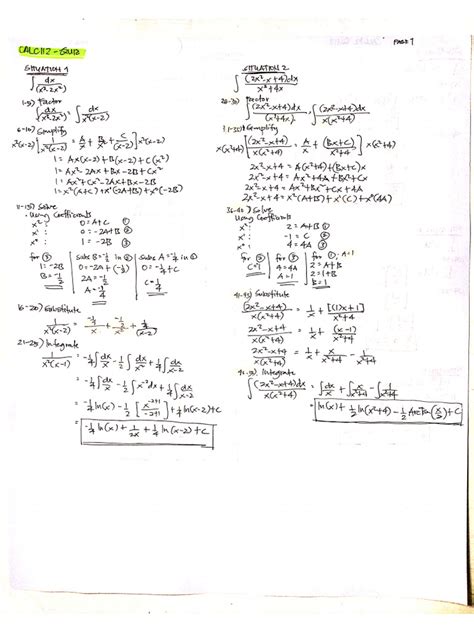 CALC112 - QUIZ
PAGE 1
SITUATION 1
∫ dx / (x³-2x²)
1-5) Factor
∫ dx / (x³-2x²) , ∫ dx / x²(x-2)
6-10) Simplify
x²(x-2) [ 1 / x²(x-2) = A/x + B/x² + C/(x-2) ] x²(x-2)
1 = Ax(x-2) + B(x-2) + C(x²)
1 = Ax² - 2Ax + Bx - 2B + Cx²
1 = Ax² + Cx² - 2Ax + Bx - 2B
1 = x²(A+C) + x¹(-2A+B) + x⁰(-2B)
11-15) Solve
Using Coefficients
x²: 0 = A+C ①
x¹: 0 = -2A+B ②
x⁰: 1 = -2B ③
for ③ | Subs B=-1/2 in ② | Subs A=-1/4 in ①
1 = -2B | 0 = -2A + (-1/2) | 0 = -1/4 + C
B = -1/2 | 2A = -1/2 | C = 1/4
A = -1/4
16-20) Substitute
1 / x²(x-2) = -1/4 / x + -1/2 / x² + 1/4 / (x-2)
21-25) Integrate
1 / x²(x-2) = -1/4 ∫ dx/x - 1/2 ∫ dx/x² + 1/4 ∫ dx/(x-2)
= -1/4 ∫ dx/x - 1/2 ∫ x⁻² dx + 1/4 ∫ dx/(x-2)
= -1/4 ln(x) - 1/2 [ x⁻²⁺¹ / -2+1 ] + 1/4 ln(x-2) + C
= -1/4 ln(x) + 1/2x + 1/4 ln(x-2) + C
SITUATION 2
∫ (2x²-x+4)dx / x³+4x
Factor
∫ (2x²-x+4)dx / (x³+4x) , ∫ (2x²-x+4)dx / x(x²+4)
Simplify
x(x²+4) [ (2x²-x+4) / x(x²+4) = A/x + (Bx+C) / x²+4 ] x(x²+4)
2x²-x+4 = A(x²+4) + (Bx+C)x
2x²-x+4 = Ax²+4A+Bx²+Cx
2x²-x+4 = Ax²+Bx²+Cx+4A
2x²-x+4 = x²(A+B) + x¹(C) + x⁰(4A)
36-40) Solve
x²: 2 = A+B ①
x¹: -1 = C ②
x⁰: 4 = 4A ③
for ② | for ③ | for ①; A=1
C=-1 | 4 = 4A | 2 = A+B
A = 1 | 2 = 1+B
B = 1
41-45) Substitute
(2x²-x+4) / x(x²+4) = 1/x + [(1)x+1] / x²+4
2x²-x+4 / x(x²+4) = 1/x + (x-1) / x²+4
2x²-x+4 / x(x²+4) = 1/x + x / x²+4 - 1 / x²+4
Integrate
∫ (2x²-x+4)dx / x(x²+4) = ∫ dx/x + ∫ x / x²+4 - ∫ 1 / x²+4
= ln(x) + 1/2 ln(x²+4) - 1/2 ArcTan(x/2) + C